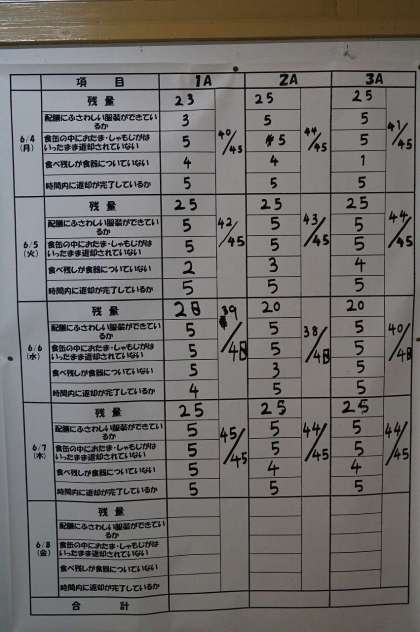 項目 1A 2A 3A
6/4 (月)
残量 23 25 25
配膳にふさわしい服装ができているか 3 5 5
食缶の中におたま・しゃもじがはいったまま返却されていない 5 5 5
食べ残しが食器についていない 4 4 1
時間内に返却が完了しているか 5 5 5
40/45 44/45 41/45
6/5 (火)
残量 25 25 25
配膳にふさわしい服装ができているか 5 5 5
食缶の中におたま・しゃもじがはいったまま返却されていない 5 5 5
食べ残しが食器についていない 2 3 4
時間内に返却が完了しているか 5 5 5
42/45 43/45 44/45
6/6 (水)
残量 20 20
配膳にふさわしい服装ができているか 5 5 5
食缶の中におたま・しゃもじがはいったまま返却されていない 5 5 5
食べ残しが食器についていない 5 3 5
時間内に返却が完了しているか 4 5 5
39/ 38/ 40/
6/7 (木)
残量 25 25 25
配膳にふさわしい服装ができているか 5 5 5
食缶の中におたま・しゃもじがはいったまま返却されていない 5 5 5
食べ残しが食器についていない 5 4 4
時間内に返却が完了しているか 5 5 5
45/45 44/45 44/45
6/8 (金)
残量
配膳にふさわしい服装ができているか
食缶の中におたま・しゃもじがはいったまま返却されていない
食べ残しが食器についていない
時間内に返却が完了しているか
合計